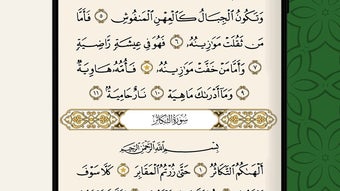 وَتَكُونُ ٱلْجِبَالُ كَٱلْعِهْنِ ٱلْمَنفُوشِ ٥ فَأَمَّا
مَن ثَقُلَتْ مَوَٰزِينُهُۥ ٦ فَهُوَ فِى عِيشَةٍ رَّاضِيَةٍ
٧ وَأَمَّا مَنْ خَفَّتْ مَوَٰزِينُهُۥ ٨ فَأُمُّهُۥ هَاوِيَةٌ
٩ وَمَآ أَدْرَىٰكَ مَا هِيَهْ ١٠ نَارٌ حَامِيَةٌۢ ١١
سُورَةُ التَّكَاثُرِ
بِسْمِ ٱللَّهِ ٱلرَّحْمَٰنِ ٱلرَّحِيمِ
أَلْهَىٰكُمُ ٱلتَّكَاثُرُ ١ حَتَّىٰ زُرْتُمُ ٱلْمَقَابِرَ ٢ كَلَّا سَوْفَ